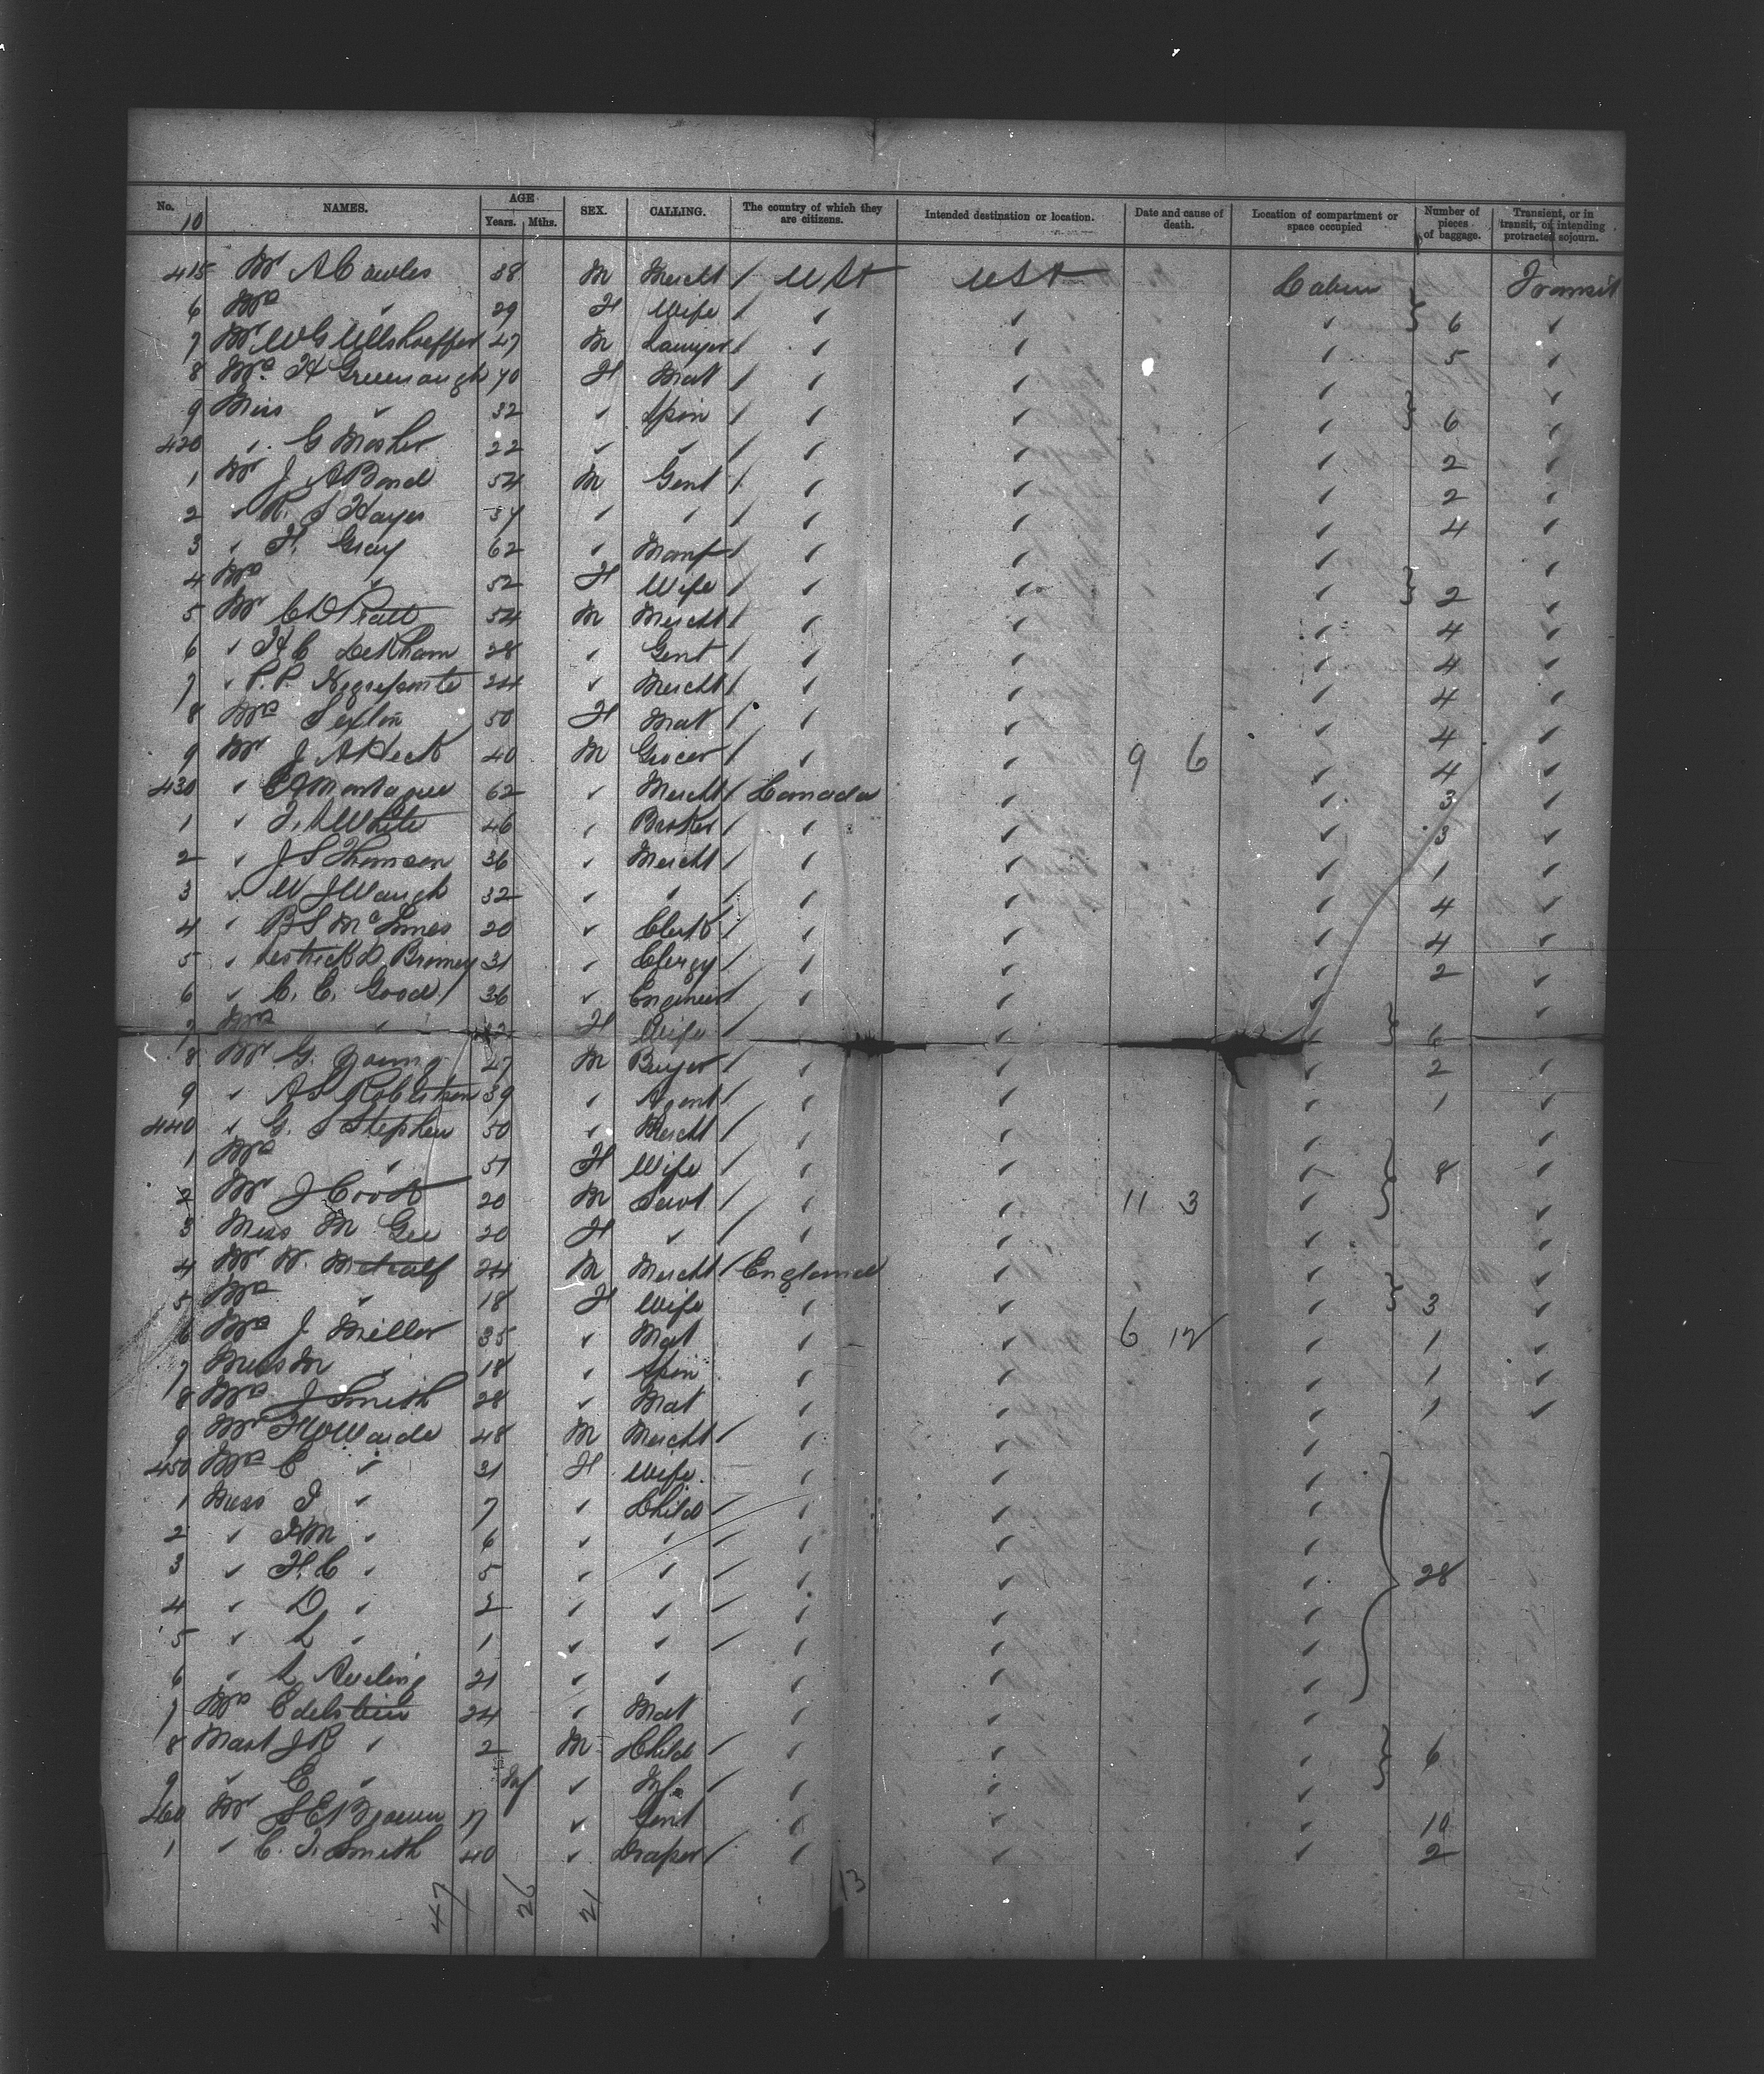 No. NAMES. AGE SEX. CALLING. The country of which they are citizens. Intended destination or location. Date and cause of death. Location of compartment or space occupied Number of pieces of baggage. Transient, or in transit, or intending protracted sojourn.
10 Years. Mths.
415 Mr A Cowles 38 M Mercht / USA USA Cabin Transit
6 Mrs ✓ 29 F Wife / ✓ ✓ ✓ 6 ✓
7 Mr W G Ullshoeffer 47 M Lawyer / ✓ ✓ ✓ 5 ✓
8 Mrs H Greenough 40 F Mat / ✓ ✓ ✓ ✓
9 Miss ✓ 32 ✓ Spin / ✓ ✓ ✓ 6 ✓
420 ✓ G Mosher 22 ✓ ✓ / ✓ ✓ ✓ 2 ✓
1 Mr J A Bond 54 M Gent / ✓ ✓ ✓ 2 ✓
2 ✓ R. S Hayes 37 ✓ ✓ / ✓ ✓ ✓ 4 ✓
3 ✓ H. Gray 62 ✓ Manf / ✓ ✓ ✓ ✓
4 Mrs ✓ 52 F Wife / ✓ ✓ ✓ 2 ✓
5 Mr C D Pratt 54 M Mercht / ✓ ✓ ✓ 4 ✓
6 ✓ H C 28 ✓ Gent / ✓ ✓ ✓ 4 ✓
7 ✓ P. P. 24 ✓ Mercht / ✓ ✓ ✓ 4 ✓
8 Mrs Sexton 50 F Mat / ✓ ✓ ✓ 4 ✓
9 Mr J A Heck 40 M Grocer / ✓ ✓ 9 6 ✓ 4 ✓
430 ✓ Montague 62 ✓ Mercht / Canada ✓ ✓ 3 ✓
1 ✓ White 46 ✓ / ✓ ✓ ✓ 3 ✓
2 ✓ J S Thomson 36 ✓ Mercht / ✓ ✓ ✓ 1 ✓
3 ✓ W J Waugh 32 ✓ ✓ / ✓ ✓ ✓ 4 ✓
4 ✓ B S McInnes 20 ✓ Clerk / ✓ ✓ ✓ 4 ✓
5 ✓ 31 ✓ Clergy / ✓ ✓ ✓ 2 ✓
6 ✓ C. C. Good 36 ✓ Engineer / ✓ ✓ ✓ ✓
7 Mrs ✓ F Wife / ✓ ✓ 6
8 Mr G. Young 27 M Buyer / ✓ ✓ ✓ 2 ✓
9 ✓ A S Robertson 39 ✓ Agent / ✓ ✓ ✓ 1 ✓
440 ✓ G. S Stephen 50 ✓ Mercht / ✓ ✓ ✓ ✓
1 Mrs ✓ 51 F Wife / ✓ ✓ ✓ 8 ✓
2 Mr J Cook 20 M Servt / ✓ ✓ 11 3 ✓ ✓
3 Miss M Gee 20 F ✓ / ✓ ✓ ✓ ✓
4 Mr W. Metcalf 24 M Mercht / England ✓ ✓ ✓
5 Mrs ✓ 18 F Wife ✓ ✓ ✓ 3 ✓
6 Mrs J. Miller 35 ✓ Mat ✓ ✓ 6 12 ✓ 1 ✓
7 Miss M ✓ 18 ✓ Spin ✓ ✓ ✓ 1 ✓
8 Mrs J Smith 28 ✓ Mat ✓ ✓ ✓ 1 ✓
9 Mr Warde 48 M Mercht / ✓ ✓ ✓
450 Mrs C ✓ 31 F Wife ✓ ✓ ✓
1 Miss J ✓ 7 ✓ Child / ✓ ✓ ✓
2 ✓ ✓ 6 ✓ ✓ / ✓ ✓ ✓
3 ✓ H. C ✓ 5 ✓ ✓ / ✓ ✓ ✓ 28
4 ✓ D ✓ 2 ✓ ✓ / ✓ ✓ ✓
5 ✓ L ✓ 1 ✓ ✓ / ✓ ✓ ✓
6 ✓ L Aveling 21 ✓ ✓ ✓ ✓ ✓
7 Mrs Edelstein 24 ✓ Mat ✓ ✓ ✓
8 Mast J R ✓ 2 M Child / ✓ ✓ ✓ 6
9 ✓ E ✓ Inf ✓ Inf. / ✓ ✓ ✓
460 Mr S E Brown 17 ✓ Gent ✓ ✓ ✓ 10
1 ✓ C. J. Smith 40 ✓ Draper / ✓ ✓ ✓ 2
47 26 21 13